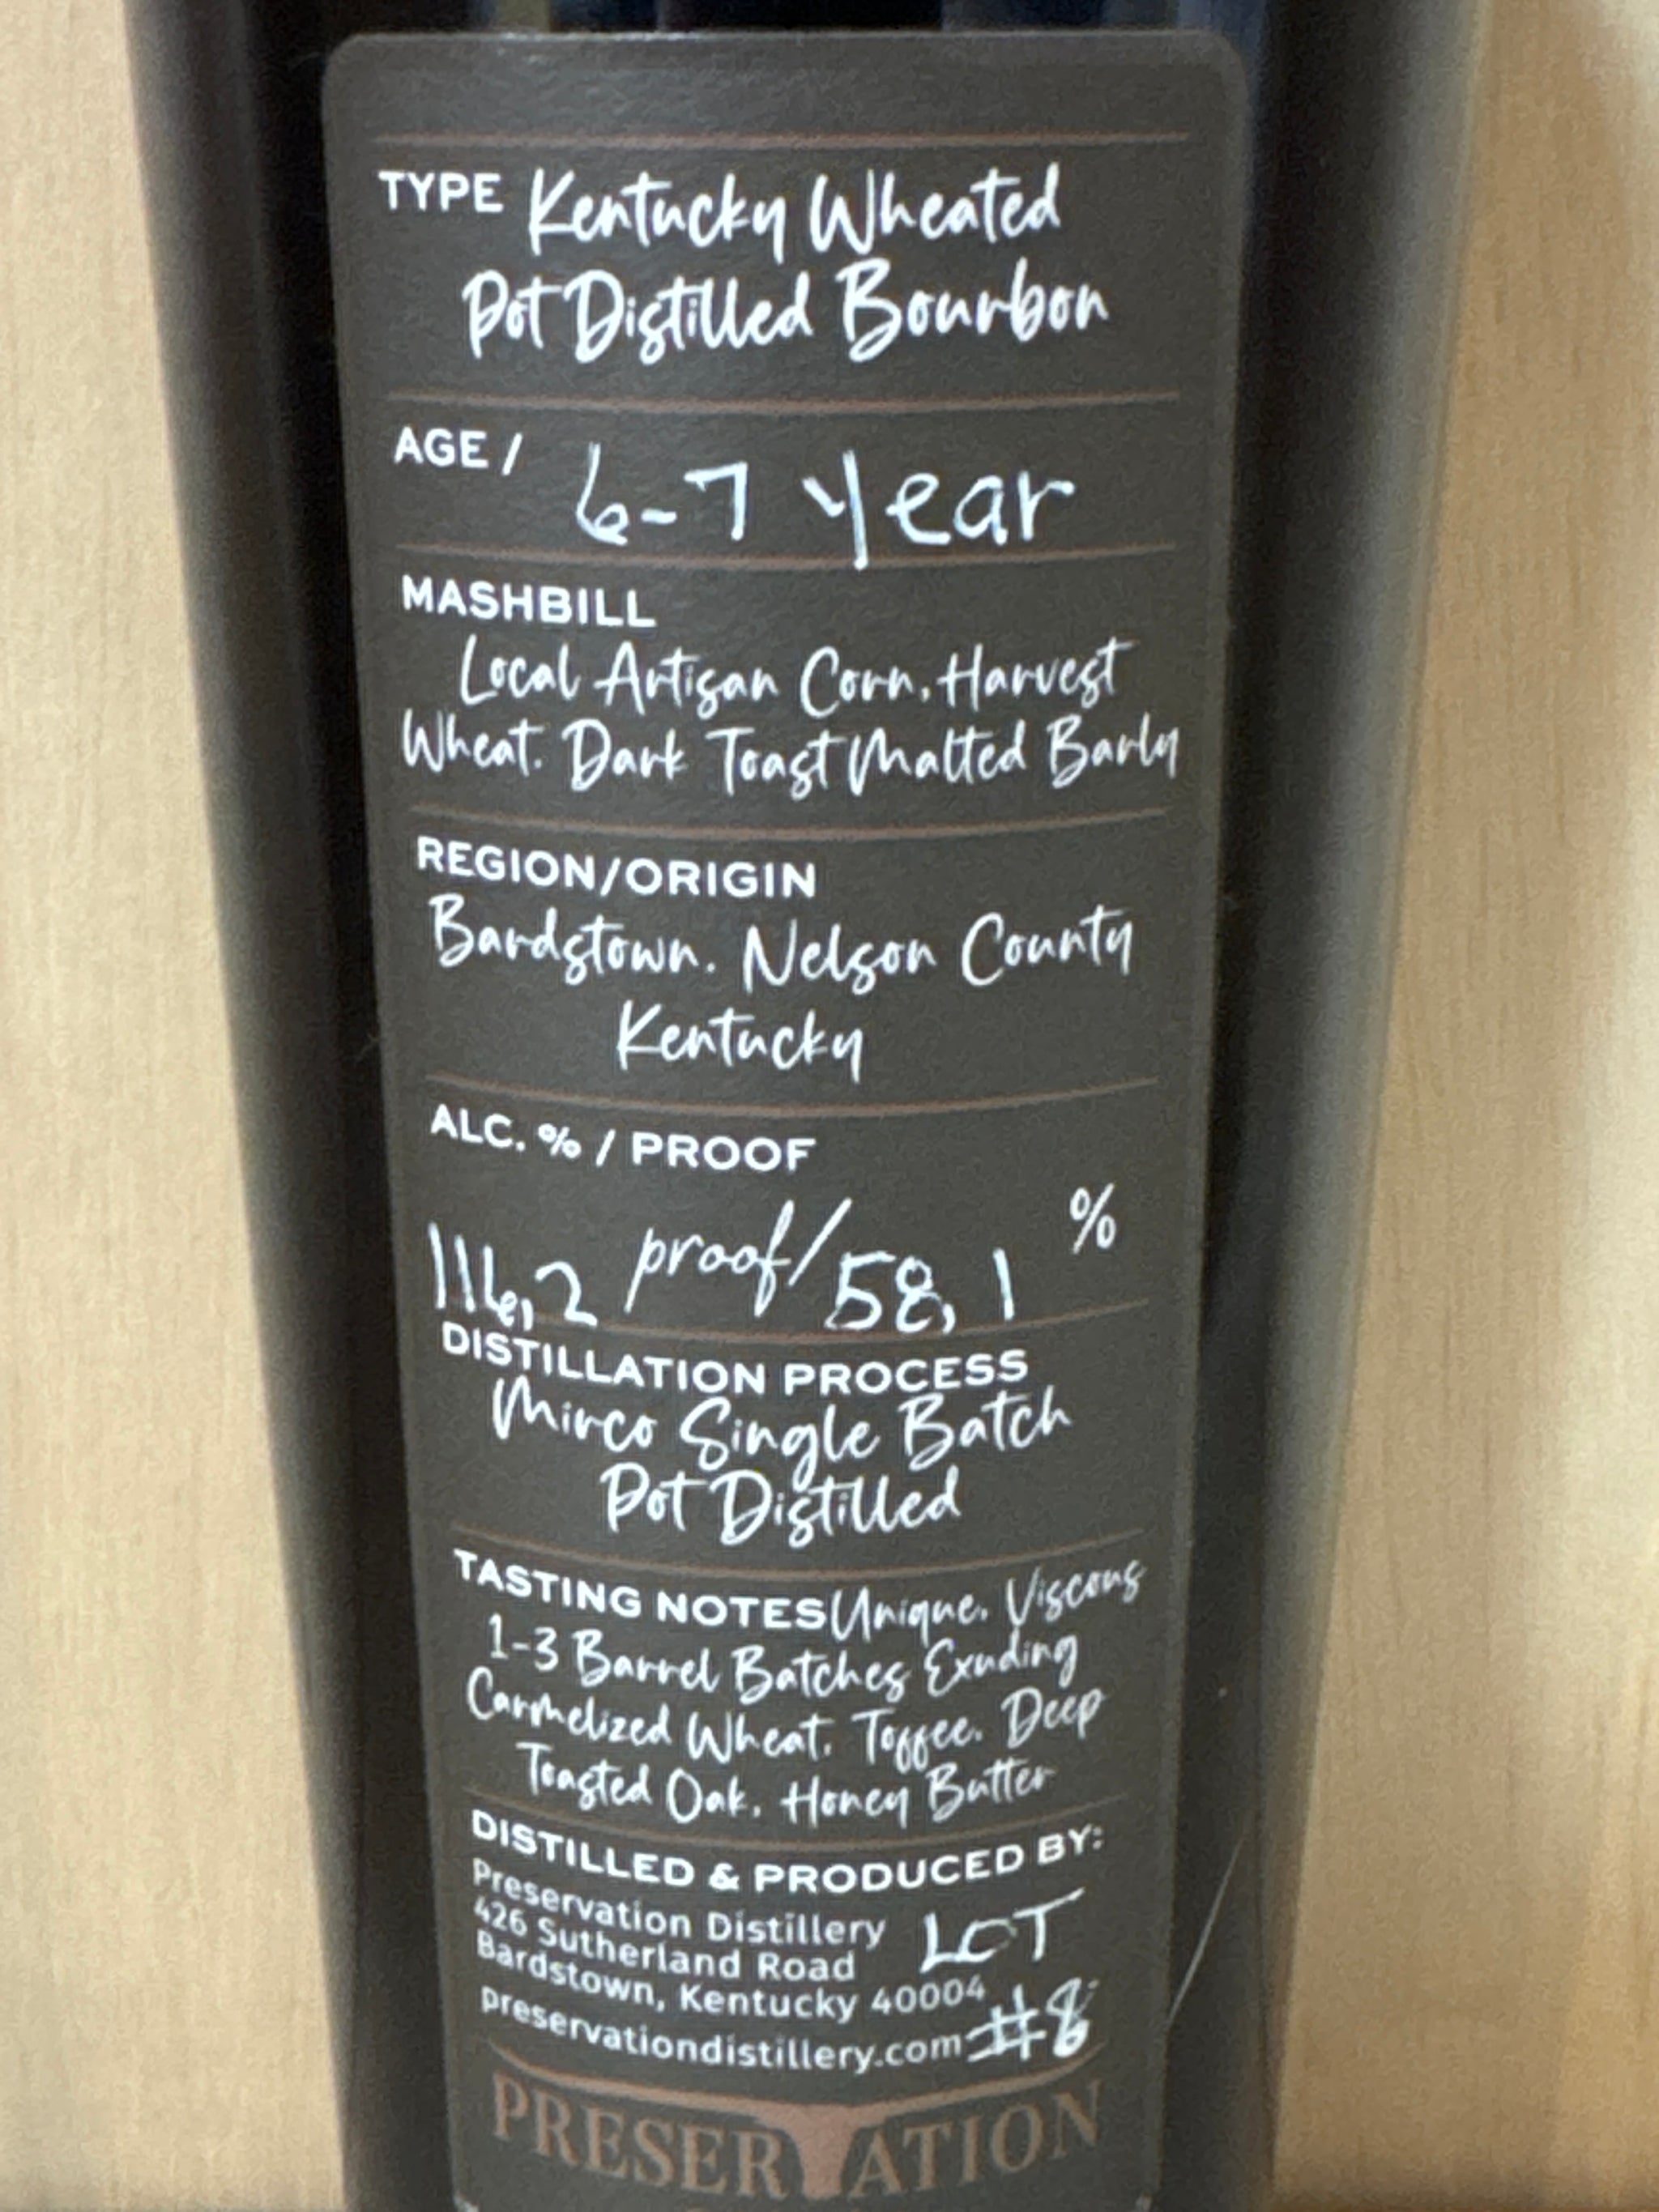 TYPE Kentucky Wheated
Pot Distilled Bourbon
AGE / 6-7 year
MASHBILL
Local Artisan Corn. Harvest
Wheat. Dark Toast Malted Barly
REGION/ORIGIN
Bardstown. Nelson County
Kentucky
ALC. % / PROOF
116,2 proof/58,1 %
DISTILLATION PROCESS
Mirco Single Batch
Pot Distilled
TASTING NOTES Unique. Viscous
1-3 Barrel Batches Exuding
Carmelized Wheat. Toffee. Deep
Toasted Oak. Honey Butter
DISTILLED & PRODUCED BY:
Preservation Distillery
426 Sutherland Road
Bardstown, Kentucky 40004
preservationdistillery.com
LOT
#8
PRESERVATION